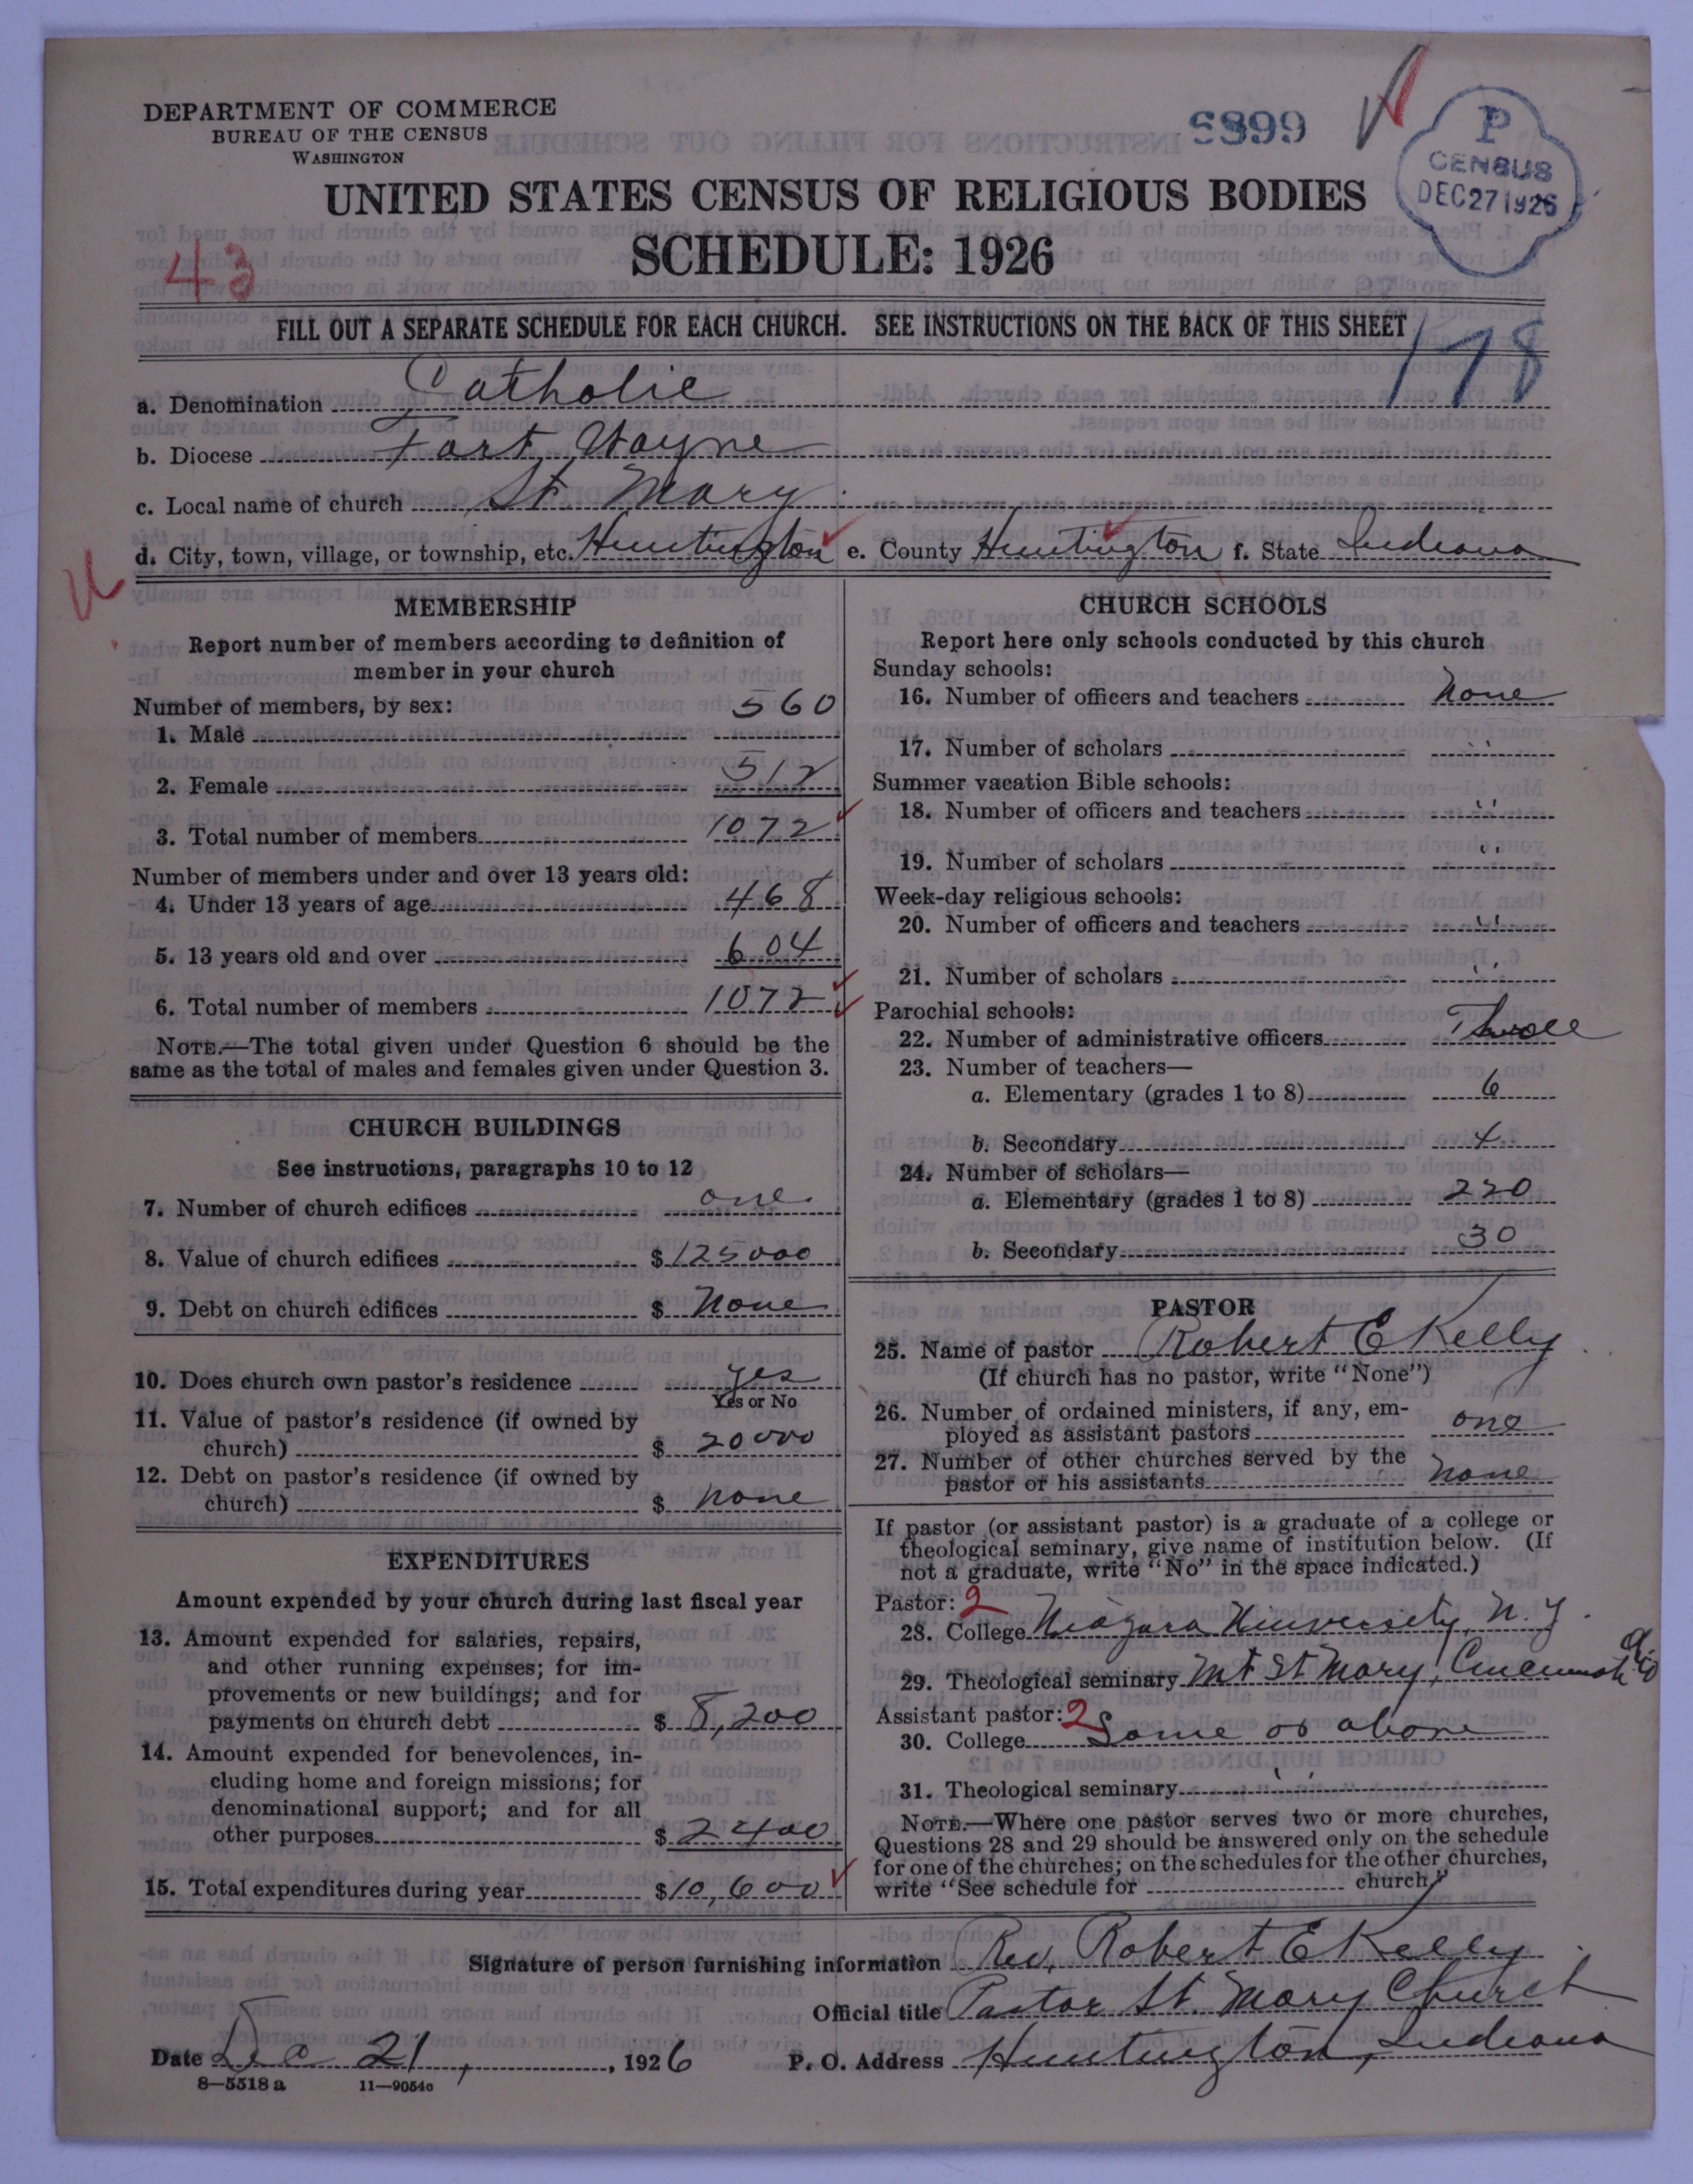 DEPARTMENT OF COMMERCE
BUREAU OF THE CENSUS
WASHINGTON
S899
P
CENSUS
DEC 27 1926
UNITED STATES CENSUS OF RELIGIOUS BODIES
SCHEDULE: 1926
43
FILL OUT A SEPARATE SCHEDULE FOR EACH CHURCH. SEE INSTRUCTIONS ON THE BACK OF THIS SHEET
178
a. Denomination Catholic
b. Diocese Fort Wayne
c. Local name of church St Mary
d. City, town, village, or township, etc. Huntington e. County Huntington f. State Indiana
MEMBERSHIP
Report number of members according to definition of
member in your church
Number of members, by sex: 560
1. Male
2. Female 512
3. Total number of members 1072
Number of members under and over 13 years old:
4. Under 13 years of age 468
5. 13 years old and over 604
6. Total number of members 1072
NOTE.—The total given under Question 6 should be the
same as the total of males and females given under Question 3.
CHURCH BUILDINGS
See instructions, paragraphs 10 to 12
7. Number of church edifices one
8. Value of church edifices $ 125000
9. Debt on church edifices $ None
10. Does church own pastor's residence yes
Yes or No
11. Value of pastor's residence (if owned by
church) $ 20000
12. Debt on pastor's residence (if owned by
church) $ none
EXPENDITURES
Amount expended by your church during last fiscal year
13. Amount expended for salaries, repairs,
and other running expenses; for im-
provements or new buildings; and for
payments on church debt $ 8,200
14. Amount expended for benevolences, in-
cluding home and foreign missions; for
denominational support; and for all
other purposes $ 2400
15. Total expenditures during year $ 10,600
CHURCH SCHOOLS
Report here only schools conducted by this church
Sunday schools:
16. Number of officers and teachers none
17. Number of scholars "
Summer vacation Bible schools:
18. Number of officers and teachers "
19. Number of scholars "
Week-day religious schools:
20. Number of officers and teachers "
21. Number of scholars "
Parochial schools:
22. Number of administrative officers
23. Number of teachers—
a. Elementary (grades 1 to 8) 6
b. Secondary 4
24. Number of scholars—
a. Elementary (grades 1 to 8) 220
b. Secondary 30
PASTOR
25. Name of pastor Robert E Kelly
(If church has no pastor, write "None")
26. Number of ordained ministers, if any, em-
ployed as assistant pastors one
27. Number of other churches served by the
pastor or his assistants none
If pastor (or assistant pastor) is a graduate of a college or
theological seminary, give name of institution below. (If
not a graduate, write "No" in the space indicated.)
Pastor: 2
28. College Niagara University, N. Y.
29. Theological seminary Mt St Mary, Cincinnati O
Assistant pastor: 2
30. College Same as above
31. Theological seminary " "
NOTE.—Where one pastor serves two or more churches,
Questions 28 and 29 should be answered only on the schedule
for one of the churches; on the schedules for the other churches,
write "See schedule for church"
Signature of person furnishing information Rev. Robert E Kelly
Official title Pastor St. Mary Church
Date Dec 21, 1926 P. O. Address Huntington, Indiana
8—5518 a 11—9054c